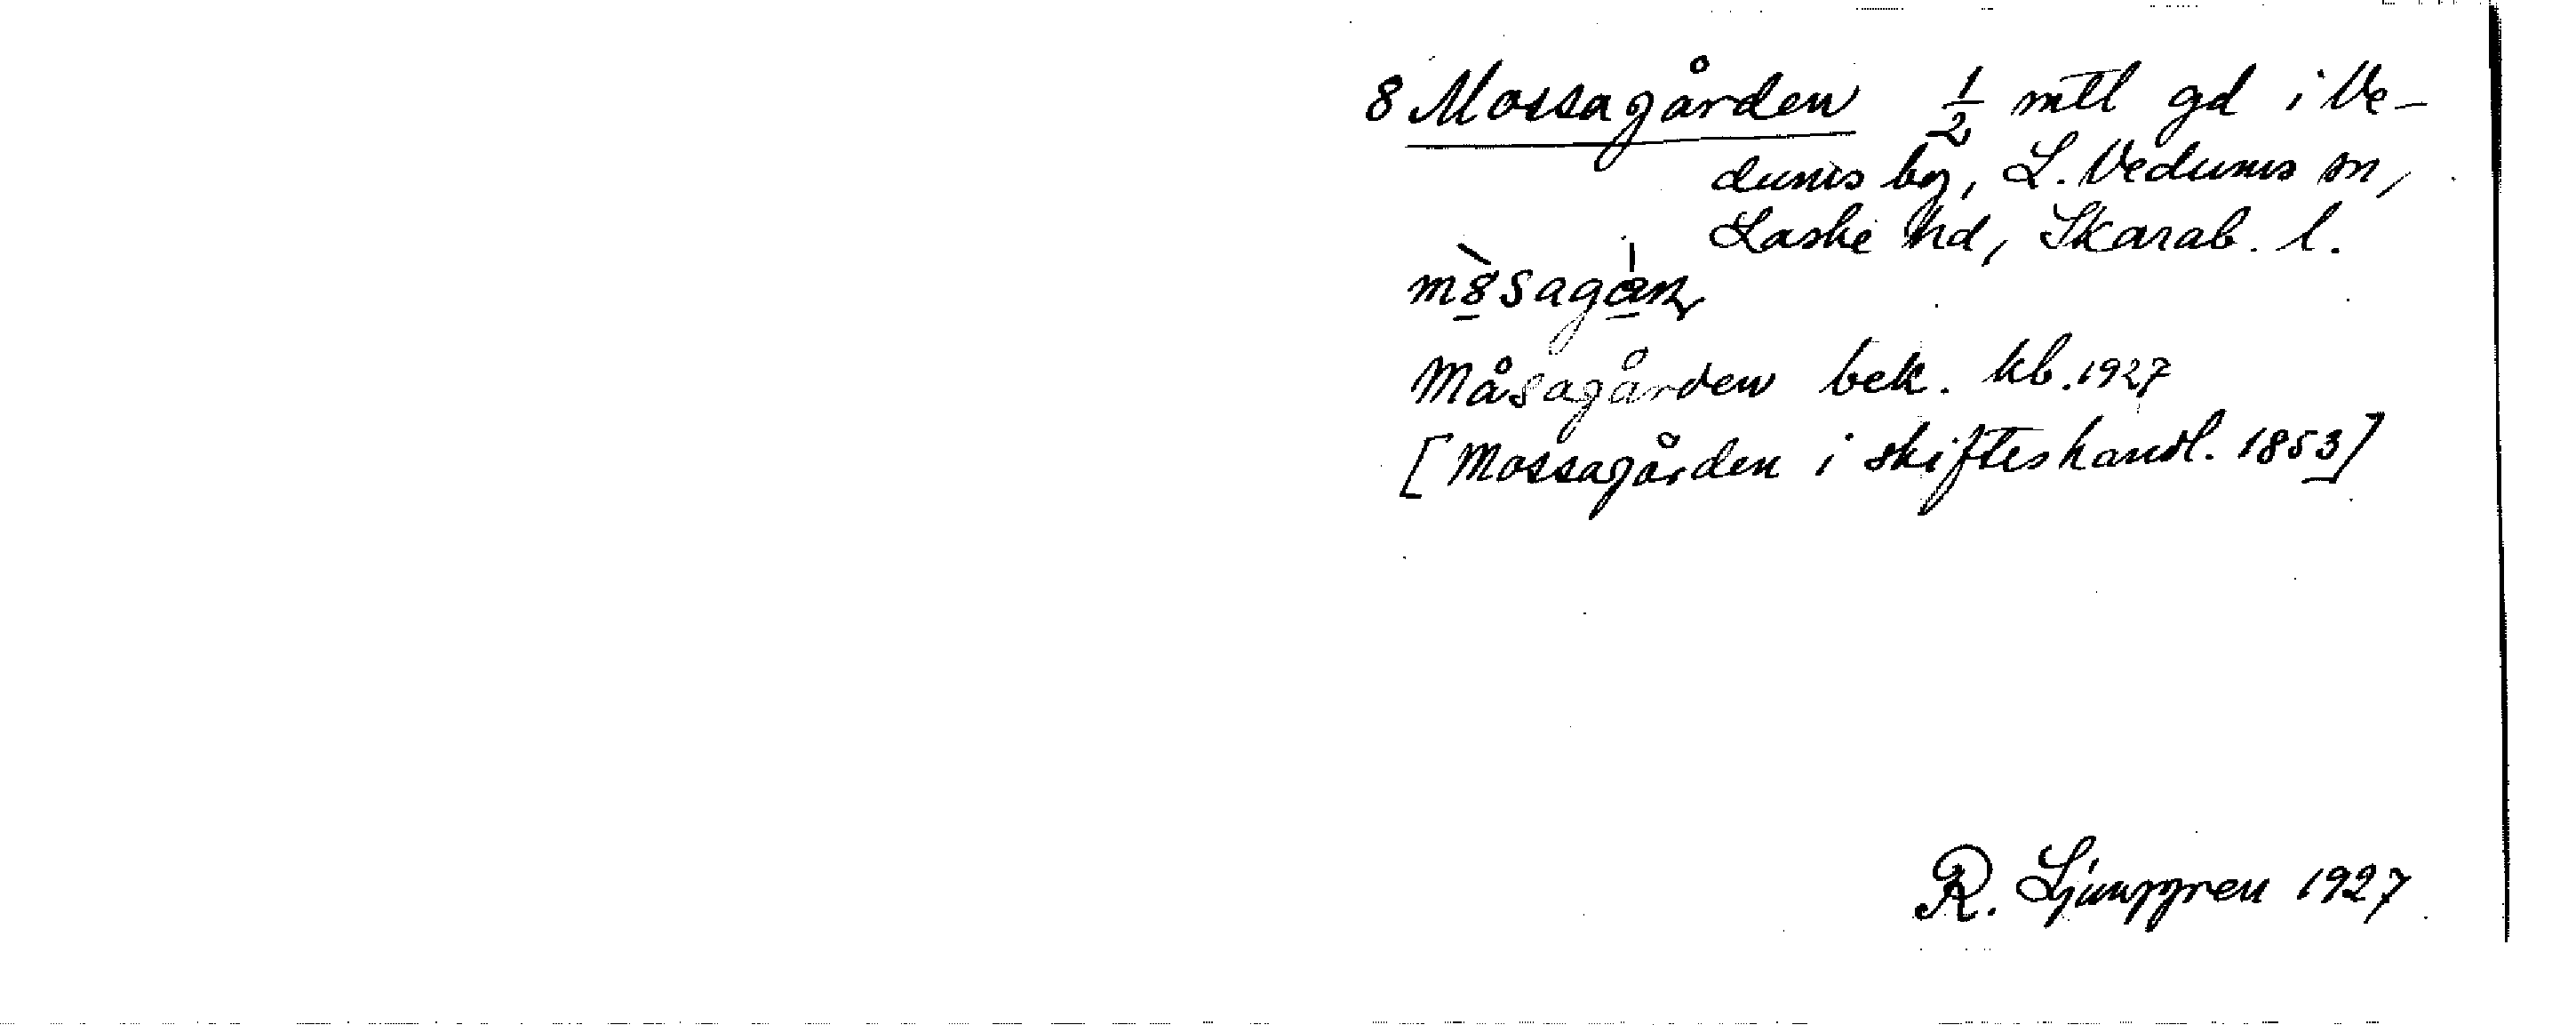 8 Mossagården 1/2 mtl gd i Ve-
dums by, L. Vedums sn,
Laske hd, Skarab. l.
Måsagården bek. kb. 1927
[Mossagården i skifteshandl. 1853]
R. Ljunggren 1927